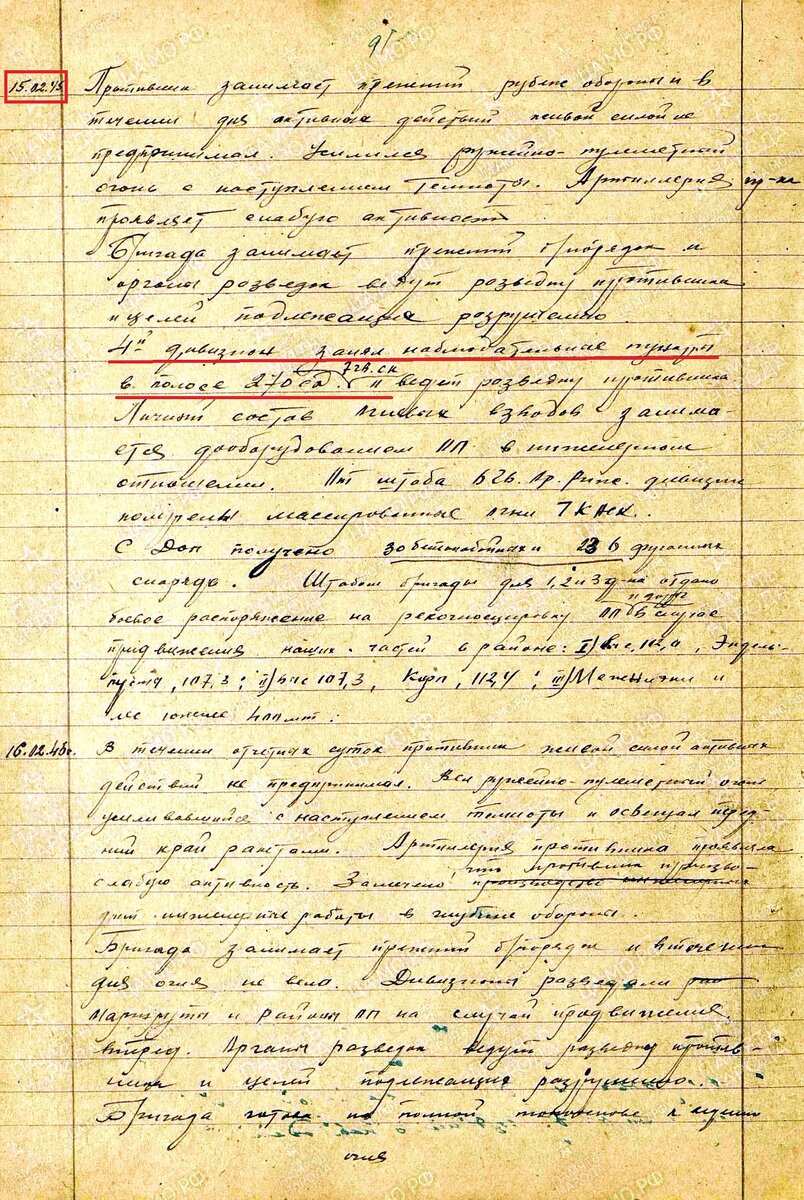 91
15.02.45 Противник занимает прежний рубеж обороны и в
течении дня активных действий живой силой не
предпринимал. Усилился ружейно-пулеметный
огонь с наступлением темноты. Артиллерия пр-ка
проявляет слабую активность
Бригада занимает прежний б/порядок и
органы разведок ведут разведку противника
и целей подлежащих разрушению.
4й дивизион занял наблюдательные пункты
в полосе 270 сд. 7 гв. ск и ведет разведку противника.
Личный состав огневых взводов занима-
ется дооборудованием ОП в инженерном
отношении. штаба бр. дивизион
массированные огни 7 КАК.
С Доп получено 30 бетонобойных и 236 фугасных
снаряда. Штабом бригады для 1, 2 и 3 д-на отдано
боевое распоряжение на рекогносцировку ОП в случае
продвижения наших частей в районе: I) выс. 112,0, Эндель-
107,3; II) выс 107,3, Корп, 112,4; III) Межнички и
лес южнее 400 мт:
16.02.45г. В течении отчетных суток противник живой силой активных
действий не предпринимал. Вел ружейно-пулеметный огонь,
усиливавшийся с наступлением темноты и освещал перед-
ний край ракетами. Артиллерия противника проявляла
слабую активность. Замечено, что противник произво-
дит инженерные работы в глубине обороны.
Бригада занимает прежний б/порядок и в течении
дня огня не вела. Дивизионы разведали
маршруты и районы ОП на случай продвижения
вперед. Органы разведок ведут разведку против-
ника и целей подлежащих разрушению.
Бригада готова на полной к ведению
огня